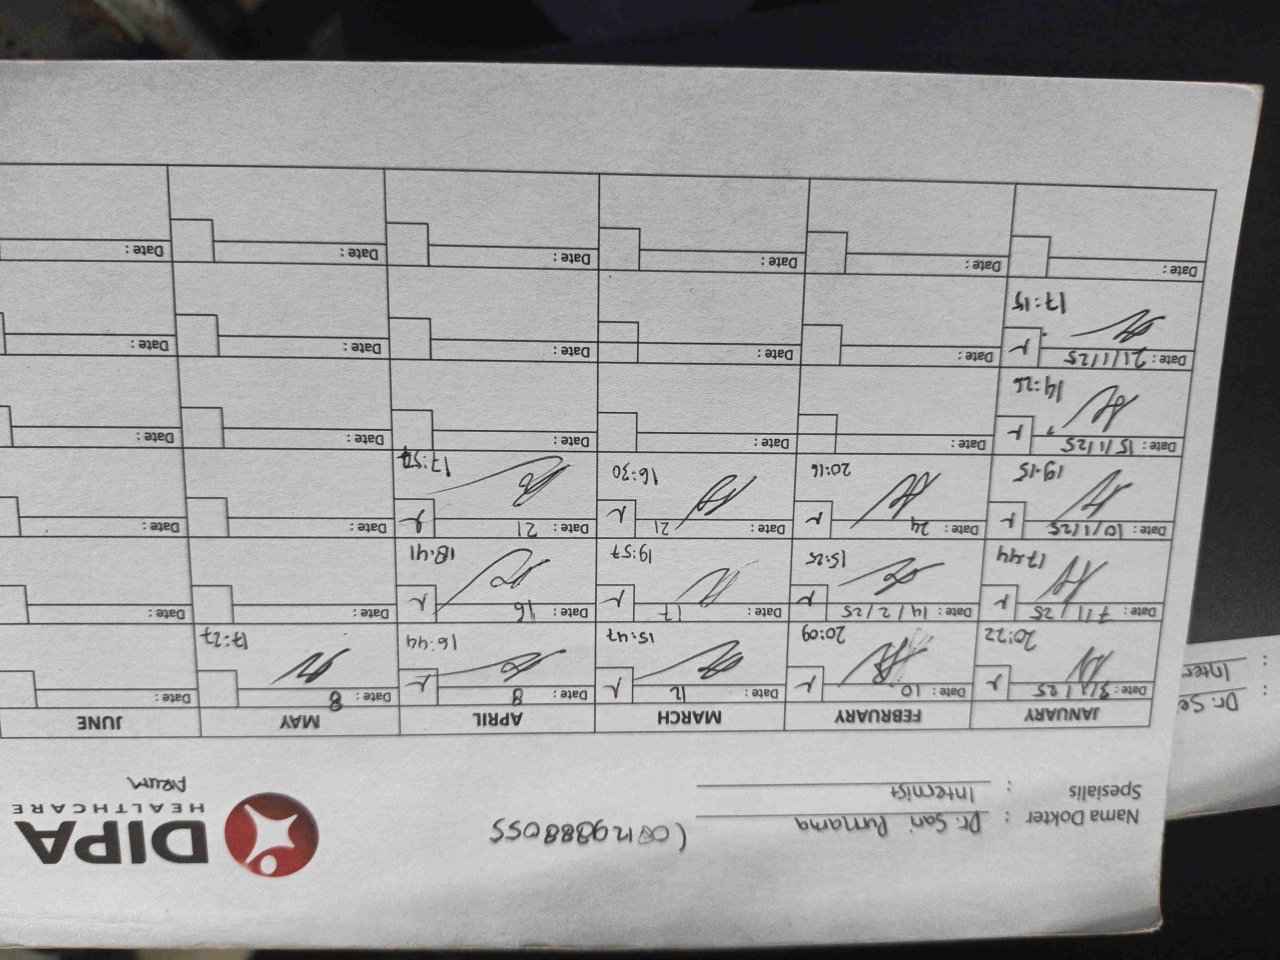 Nama Dokter : Dr. Sari Purnama
Spesialis : Internist
DIPA
HEALTHCARE
JANUARY FEBRUARY MARCH APRIL MAY JUNE
Date: 3/1/25 Date: 10 Date: 12 Date: 8 Date: 8 Date:
20:22 20:09 15:47 16:44 17:27
Date: 7/1/25 Date: 14/2/25 Date: 17 Date: 16 Date: Date:
17:44 15:25 19:57 18:41
Date: 10/1/25 Date: 24 Date: 21 Date: 21 Date: Date:
19.15 20:16 16:30 17:57
Date: 15/1/25 Date: Date: Date: Date: Date:
14:26
Date: 21/1/25 Date: Date: Date: Date: Date:
17:15
Date: Date: Date: Date: Date: Date:
: Dr. Se
: Inter